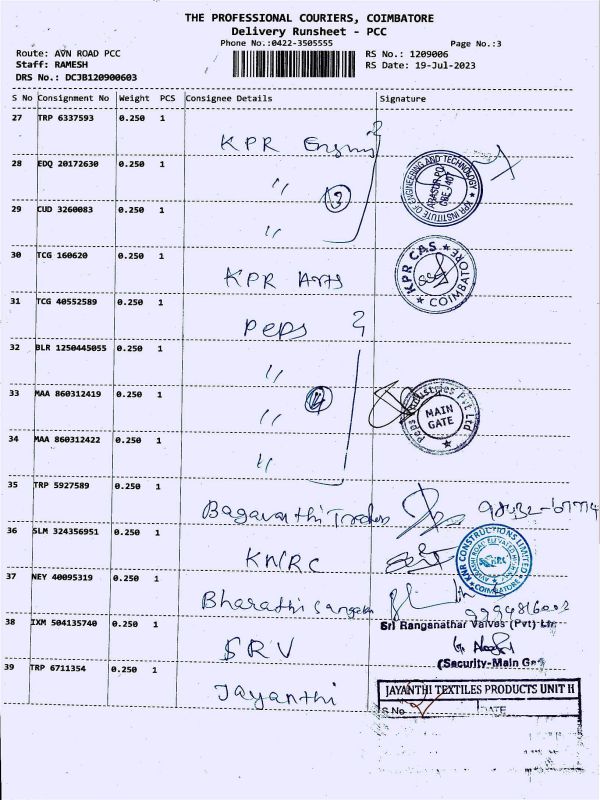 THE PROFESSIONAL COURIERS, COIMBATORE
Delivery Runsheet - PCC
Phone No.:0422-3505555
Page No.:3
Route: AVN ROAD PCC
RS No.: 1209006
Staff: RAMESH
RS Date: 19-Jul-2023
DRS No.: DCJB120900603
S No Consignment No Weight PCS Consignee Details Signature
27 TRP 6337593 0.250 1
KPR
28 EDQ 20172630 0.250 1
" 3
KPR INSTITUTE OF ENGINEERING AND TECHNOLOGY
ARASUR PO
CBE-407
29 CUD 3260083 0.250 1
"
30 TCG 160620 0.250 1
KPR Arts
KPR CAS
COIMBATORE
31 TCG 40552589 0.250 1
Peps
32 BLR 1250445055 0.250 1
"
33 MAA 860312419 0.250 1
" 4
Peps Industries Pvt Ltd
MAIN
GATE
34 MAA 860312422 0.250 1
"
35 TRP 5927589 0.250 1
Bagavanthi Traders
36 SLM 324356951 0.250 1
KNRC
KNR CONSTRUCTIONS LIMITED
COIMBATORE
37 NEY 40095319 0.250 1
Bharathi
38 IXM 504135740 0.250 1
SRV
Sri Ranganathar Valves (Pvt) Ltd
(Security-Main Ga
39 TRP 6711354 0.250 1
Jayanthi
JAYANTHI TEXTILES PRODUCTS UNIT II
S.No DATE